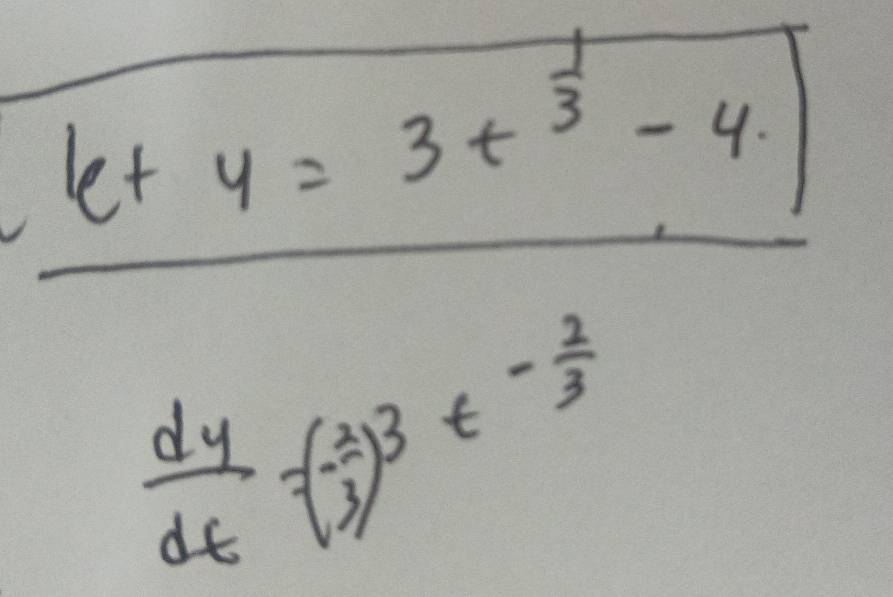 let y = 3 t^{\frac{1}{3}} - 4.
\frac{dy}{dt} = (-\frac{2}{3}) 3 t^{-\frac{2}{3}}